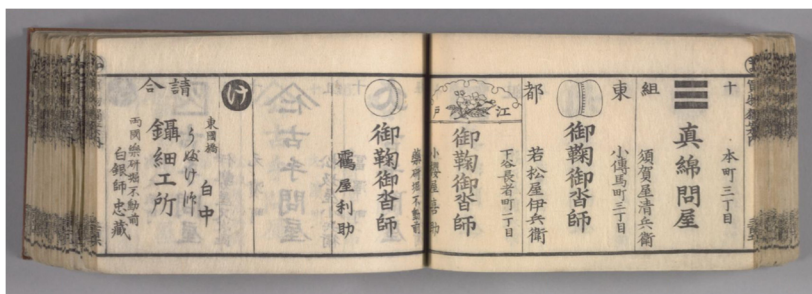 十組
本町三丁目
真綿問屋
須賀屋清兵衛
東都
小傳馬町三丁目
御鞠御沓師
若松屋伊兵衛
江戸
下谷長者町二丁目
御鞠御沓師
小櫻屋喜助
藥研堀不動前
御鞠御沓師
鶴屋利助
け
東國橋
白中
請合
鑷細工所
両國藥研堀不動前
白銀師忠藏